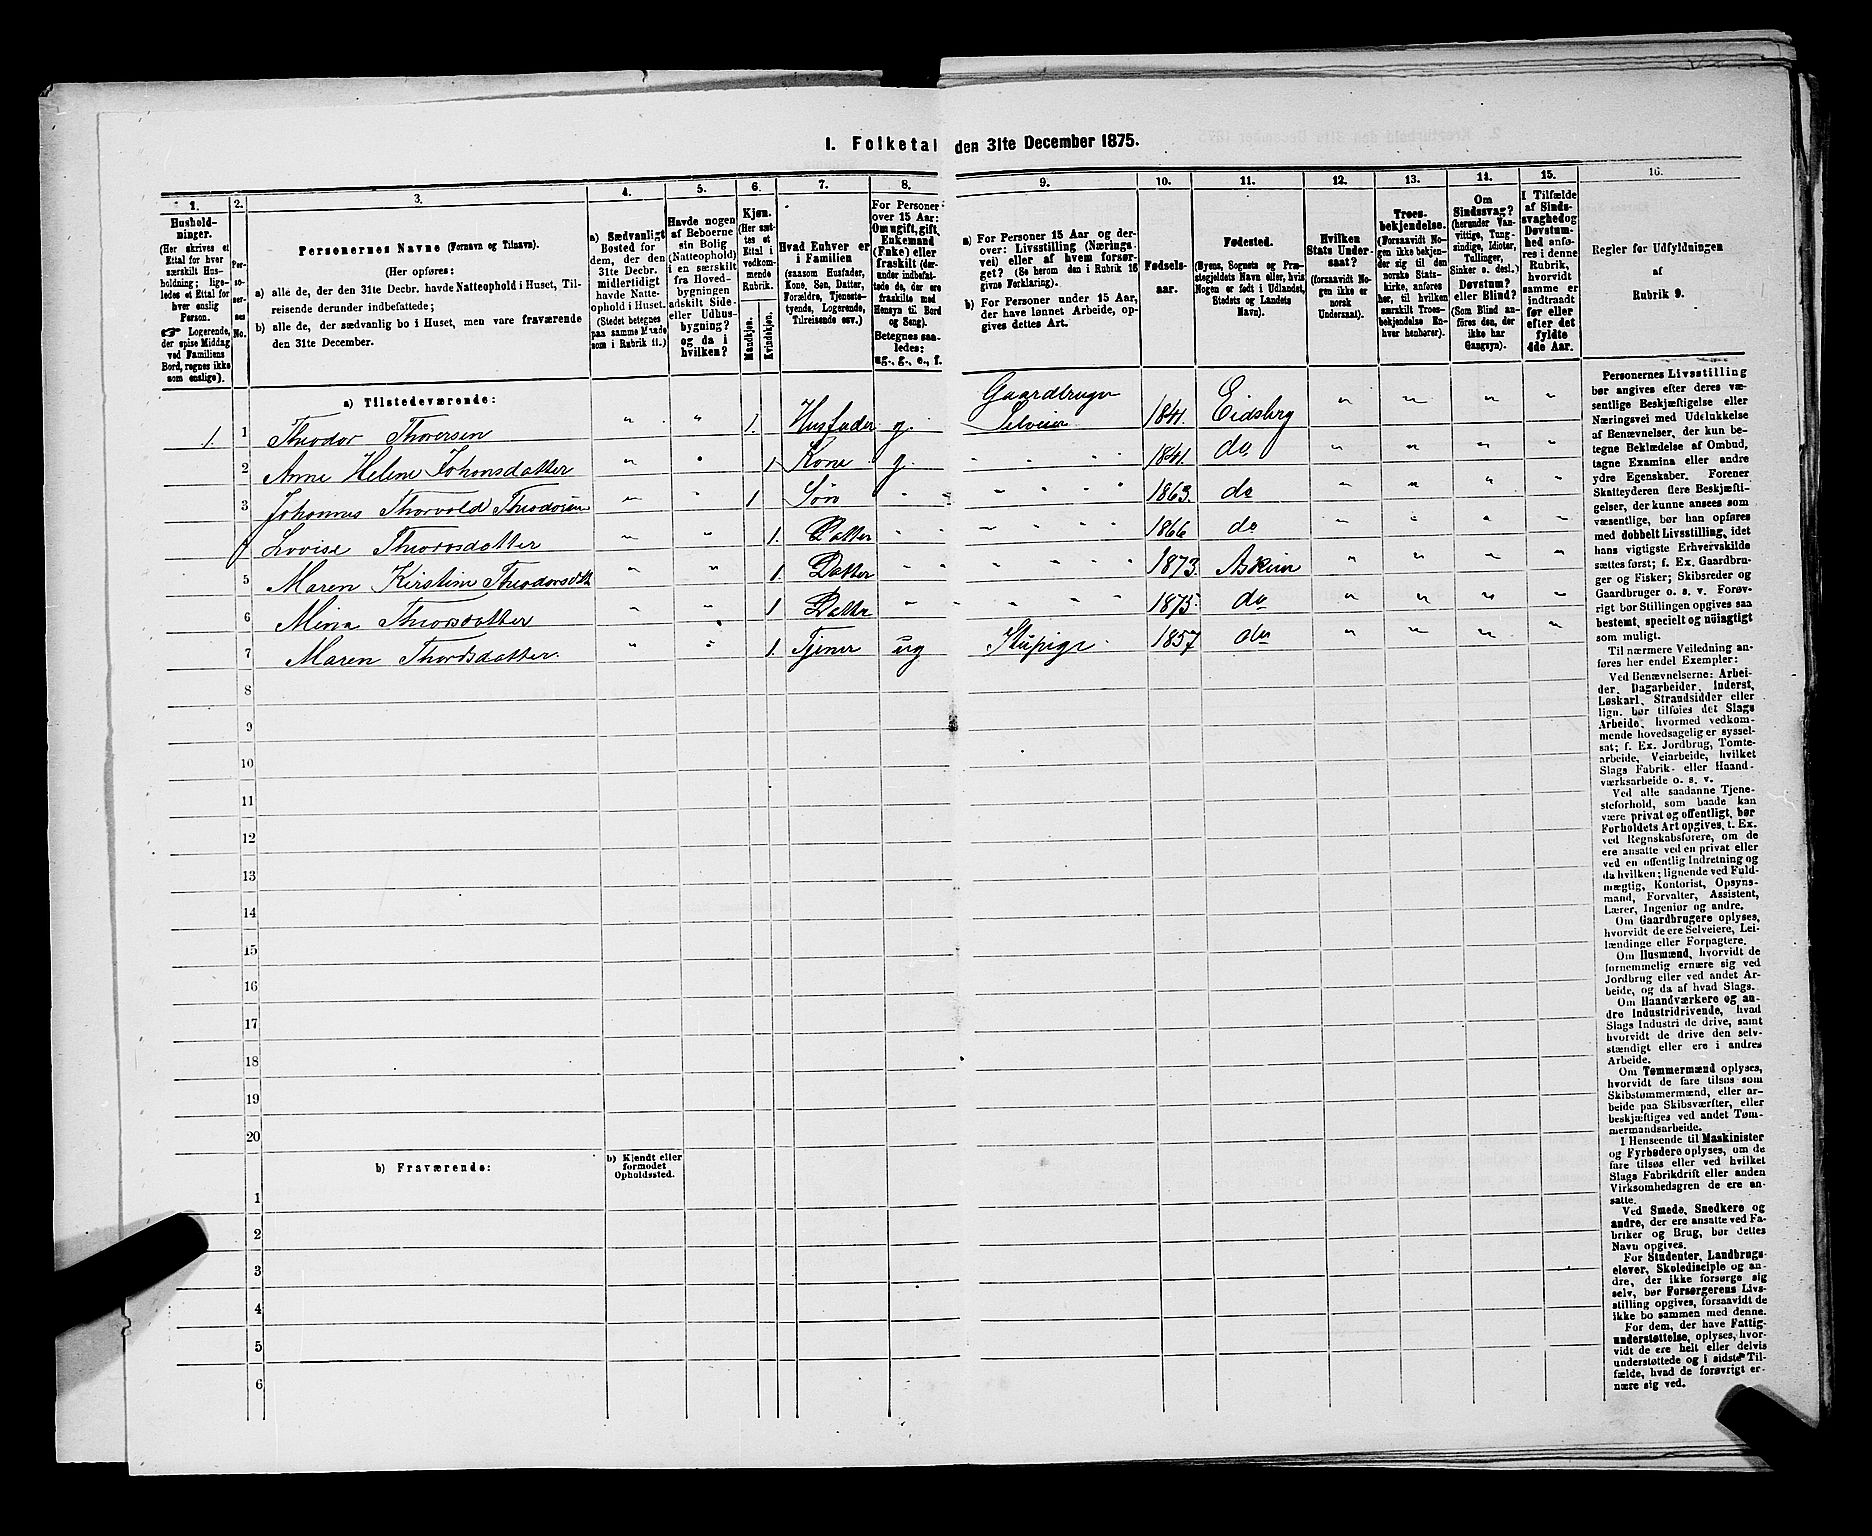 1. Folketal den 31te December 1875.
1.
Hushold-
ninger.
(Her skrives et
Ettal for hver
særskilt Hus-
holdning; lige-
ledes et Ettal for
hver enslig
Person.
☞ Logerende,
der spise Middag
ved Familiens
Bord, regnes ikke
som enslige).
2.
Per-
so-
ner-
nes
No.
3.
Personernes Navne (Fornavn og Tilnavn).
(Her opføres:
a) alle de, der den 31te Decbr. havde Natteophold i Huset, Til-
reisende derunder indbefattede;
b) alle de, der sædvanlig bo i Huset, men vare fraværende
den 31te December.
4.
a) Sædvanligt
Bosted for
dem, der den
31te Decbr.
midlertidigt
havde Natte-
ophold i Huset.
(Stedet betegnes
paa samme Maade
som i Rubrik 11.)
5.
Havde nogen
af Beboerne
sin Bolig
(Natteophold)
i en særskilt
fra Hoved-
bygningen
adskilt Side-
eller Udhus-
bygning?
og da i
hvilken?
6.
Kjøn.
(Her sæt-
tes et
Ettal i
vedkom-
mende
Rubrik.
Mandkjøn.
Kvindekjøn.
7.
Hvad Enhver er
i Familien
(saasom Husfader,
Kone, Søn, Datter,
Forældre, Tjeneste-
tyende, Logerende,
Tilreisende osv.)
8.
For Personer
over 15 Aar:
Om ugift, gift,
Enkemand
(Enke) eller
fraskilt (der-
under indbefat-
tede de, der ere
fraskilte med
Hensyn til Bord
og Seng).
Betegnes saa-
ledes:
ug., g., e., f.
9.
a) For Personer 15 Aar og der-
over: Livsstilling (Nærings-
vei) eller af hvem forsør-
get? (Se herom den i Rubrik 16
givne Forklaring).
b) For Personer under 15 Aar,
der have lønnet Arbeide, op-
gives dettes Art.
10.
Fødsels-
aar.
11.
Fødested.
(Byens, Sognets og Præ-
stegjeldets Navn eller, hvis
Nogen er født i Udlandet,
Stedets og Landets
Navn).
12.
Hvilken
Stats Under-
saat?
(forsaavidt No-
gen ikke er
norsk
Undersaat).
13.
Troes-
bekjendelse.
(Forsaavidt No-
gen ikke bekjen-
der sig til den
norske Stats-
kirke, anføres
her, til hvilken
særskilt Troes-
bekjendelse En-
hver henhører).
14.
Om
Sindssvag?
(herunder Van-
vittige, Tung-
sindige, Idioter,
Tullinger,
Sinker o. desl.)
Døvstum?
eller Blind?
(Som Blind an-
føres den, der
ikke har
Gangsyn).
15.
I Tilfælde
af Sinds-
svaghed og
Døvstum-
hed anfø-
res i denne
Rubrik,
hvorvidt
samme er
indtraadt
før eller
efter det
fyldte
4de Aar.
16.
Regler for Udfyldningen
af
Rubrik 9.
a) Tilstedeværende:
1. 1 Theodor Thoresen " " 1. Husfader g. Gaardbruger Selveier 1841. Eidsberg " " " "
2 Anne Helene Johansdatter " " 1 Kone g. " " " " 1841. do " " " "
3 Johannes Thorvald Theodorsen " " 1 Søn " " " " " " 1863. do " " " "
4 Lovise Theodorsdatter " " 1. Datter " " " " " " 1866 do " " " "
5 Maren Kirstine Theodorsdtt " " 1. Datter " " " " " " 1873. Askim " " " "
6 Mina Theorsdatter " " 1 Datter " " " " " " 1875. do " " " "
7 Maren Thordsdatter. " " 1. Tjener ug Stupige 1857 do " " " "
8
9
10
11
12
13
14
15
16
17
18
19
20
b) Fraværende:
b) Kjendt eller
formodet
Opholdssted.
1
2
3
4
5
6
Personernes Livsstilling
bør angives efter deres væ-
sentlige Beskjæftigelse eller
Næringsvei med Udelukkelse
af Benævnelser, der kun be-
tegne Beklædelse af Ombud,
tagne Examina eller andre
ydre Egenskaber. Forener
Skatteyderen flere Beskjæfti-
gelser, der kunne ansees som
væsentlige, bør han opføres
med dobbelt Livsstilling, idet
hans vigtigste Erhvervskilde
sættes først; f. Ex. Gaardbru-
ger og Fisker; Skibsreder og
Gaardbruger o. s. v. Forøv-
rigt bør Stillingen opgives saa
bestemt, specielt og nøiagtigt
som muligt.
Til nærmere Veiledning an-
føres her endel Exempler:
Ved Benævnelserne: Arbei-
der, Dagarbeider, Inderst,
Løskarl, Strandsidder eller
lign. bør tilføies det Slags
Arbeide, hvormed vedkom-
mende hovedsagelig er syssel-
sat; f. Ex. Jordbrug, Tomte-
arbeide, Veiarbeide, hvilket
Slags Fabrik- eller Haand-
værksarbeide o. s. v.
Ved alle saadanne Tjene-
steforhold, som baade kan
være privat og offentligt, bør
Forholdets Art opgives, t. Ex.
ved Regnskabsførere, om de
ere ansatte ved en privat eller
ved en offentlig Indretning og
da hvilken; lignende ved Fuld-
mægtig, Kontorist, Opsyns-
mand, Forvalter, Assistent,
Lærer, Ingeniør og andre.
Om Gaardbrugere oplyses,
hvorvidt de ere Selveiere, Lei-
lændinge eller Forpagtere.
Om Husmænd, hvorvidt de
fornemmelig ernære sig ved
Jordbrug eller ved andet Ar-
beide, og da af hvad Slags.
Om Haandværkere og an-
dre Industridrivende, hvad
Slags Industri de drive, samt
hvorvidt de drive den selv-
stændigt eller ere i andres
Arbeide.
Om Tømmermænd oplyses,
hvorvidt de fare tilsøs som
Skibstømmermænd, eller ar-
beide paa Skibsværfter, eller
beskjæftiges ved andet Tøm-
mermandsarbeide.
I Henseende til Maskinister
og Fyrbødere oplyses, om de
fare tilsøs eller ved hvilket
Slags Fabrikdrift eller anden
Virksomhedsgren de ere an-
satte.
Ved Smede, Snedkere og
andre, der ere ansatte ved Fa-
briker og Brug, bør dettes
Navn opgives.
For Studenter, Landbrugs-
elever, Skoledisciple og an-
dre, der ikke forsørge sig
selv, bør Forsørgerens Livs-
stilling opgives, forsaavidt de
ikke bo sammen med denne.
For dem, der have Fattig-
understøttelse, oplyses, hvor-
vidt de ere helt eller delvis
understøttede og i sidste Til-
fælde, hvad de forøvrigt er-
nære sig ved.